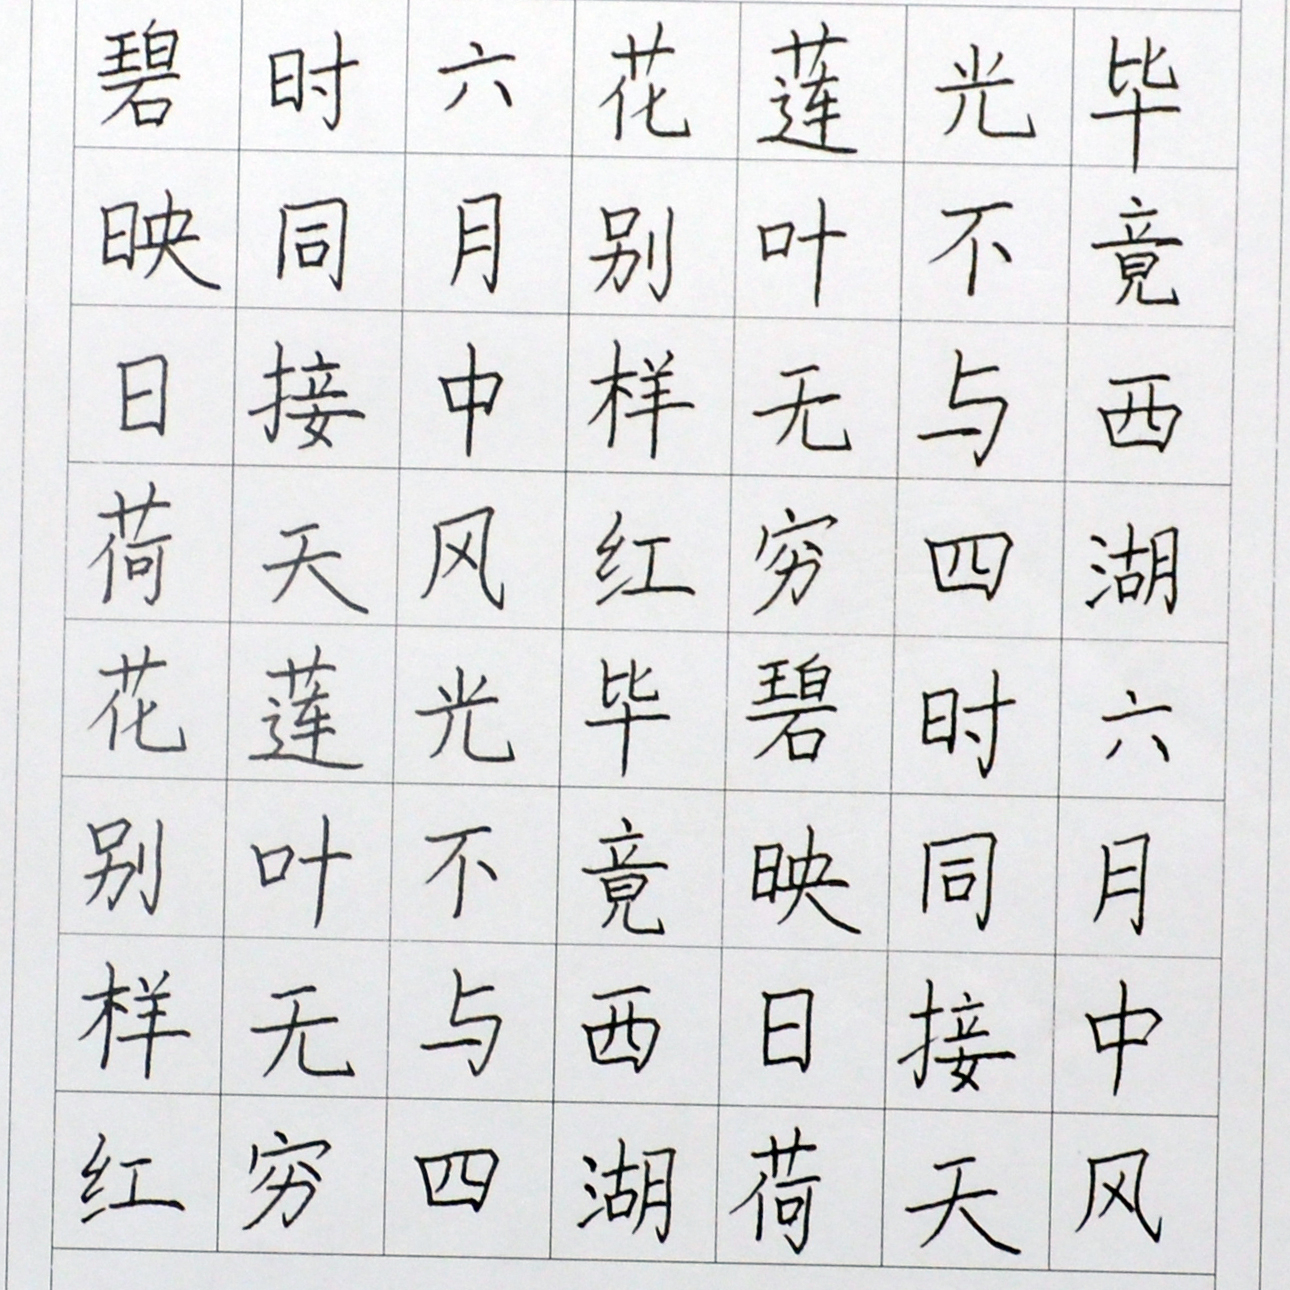 毕竟西湖六月中风
光不与四时同接天
莲叶无穷碧映日荷
花别样红毕竟西湖
六月中风光不与四
时同接天莲叶无穷
碧映日荷花别样红